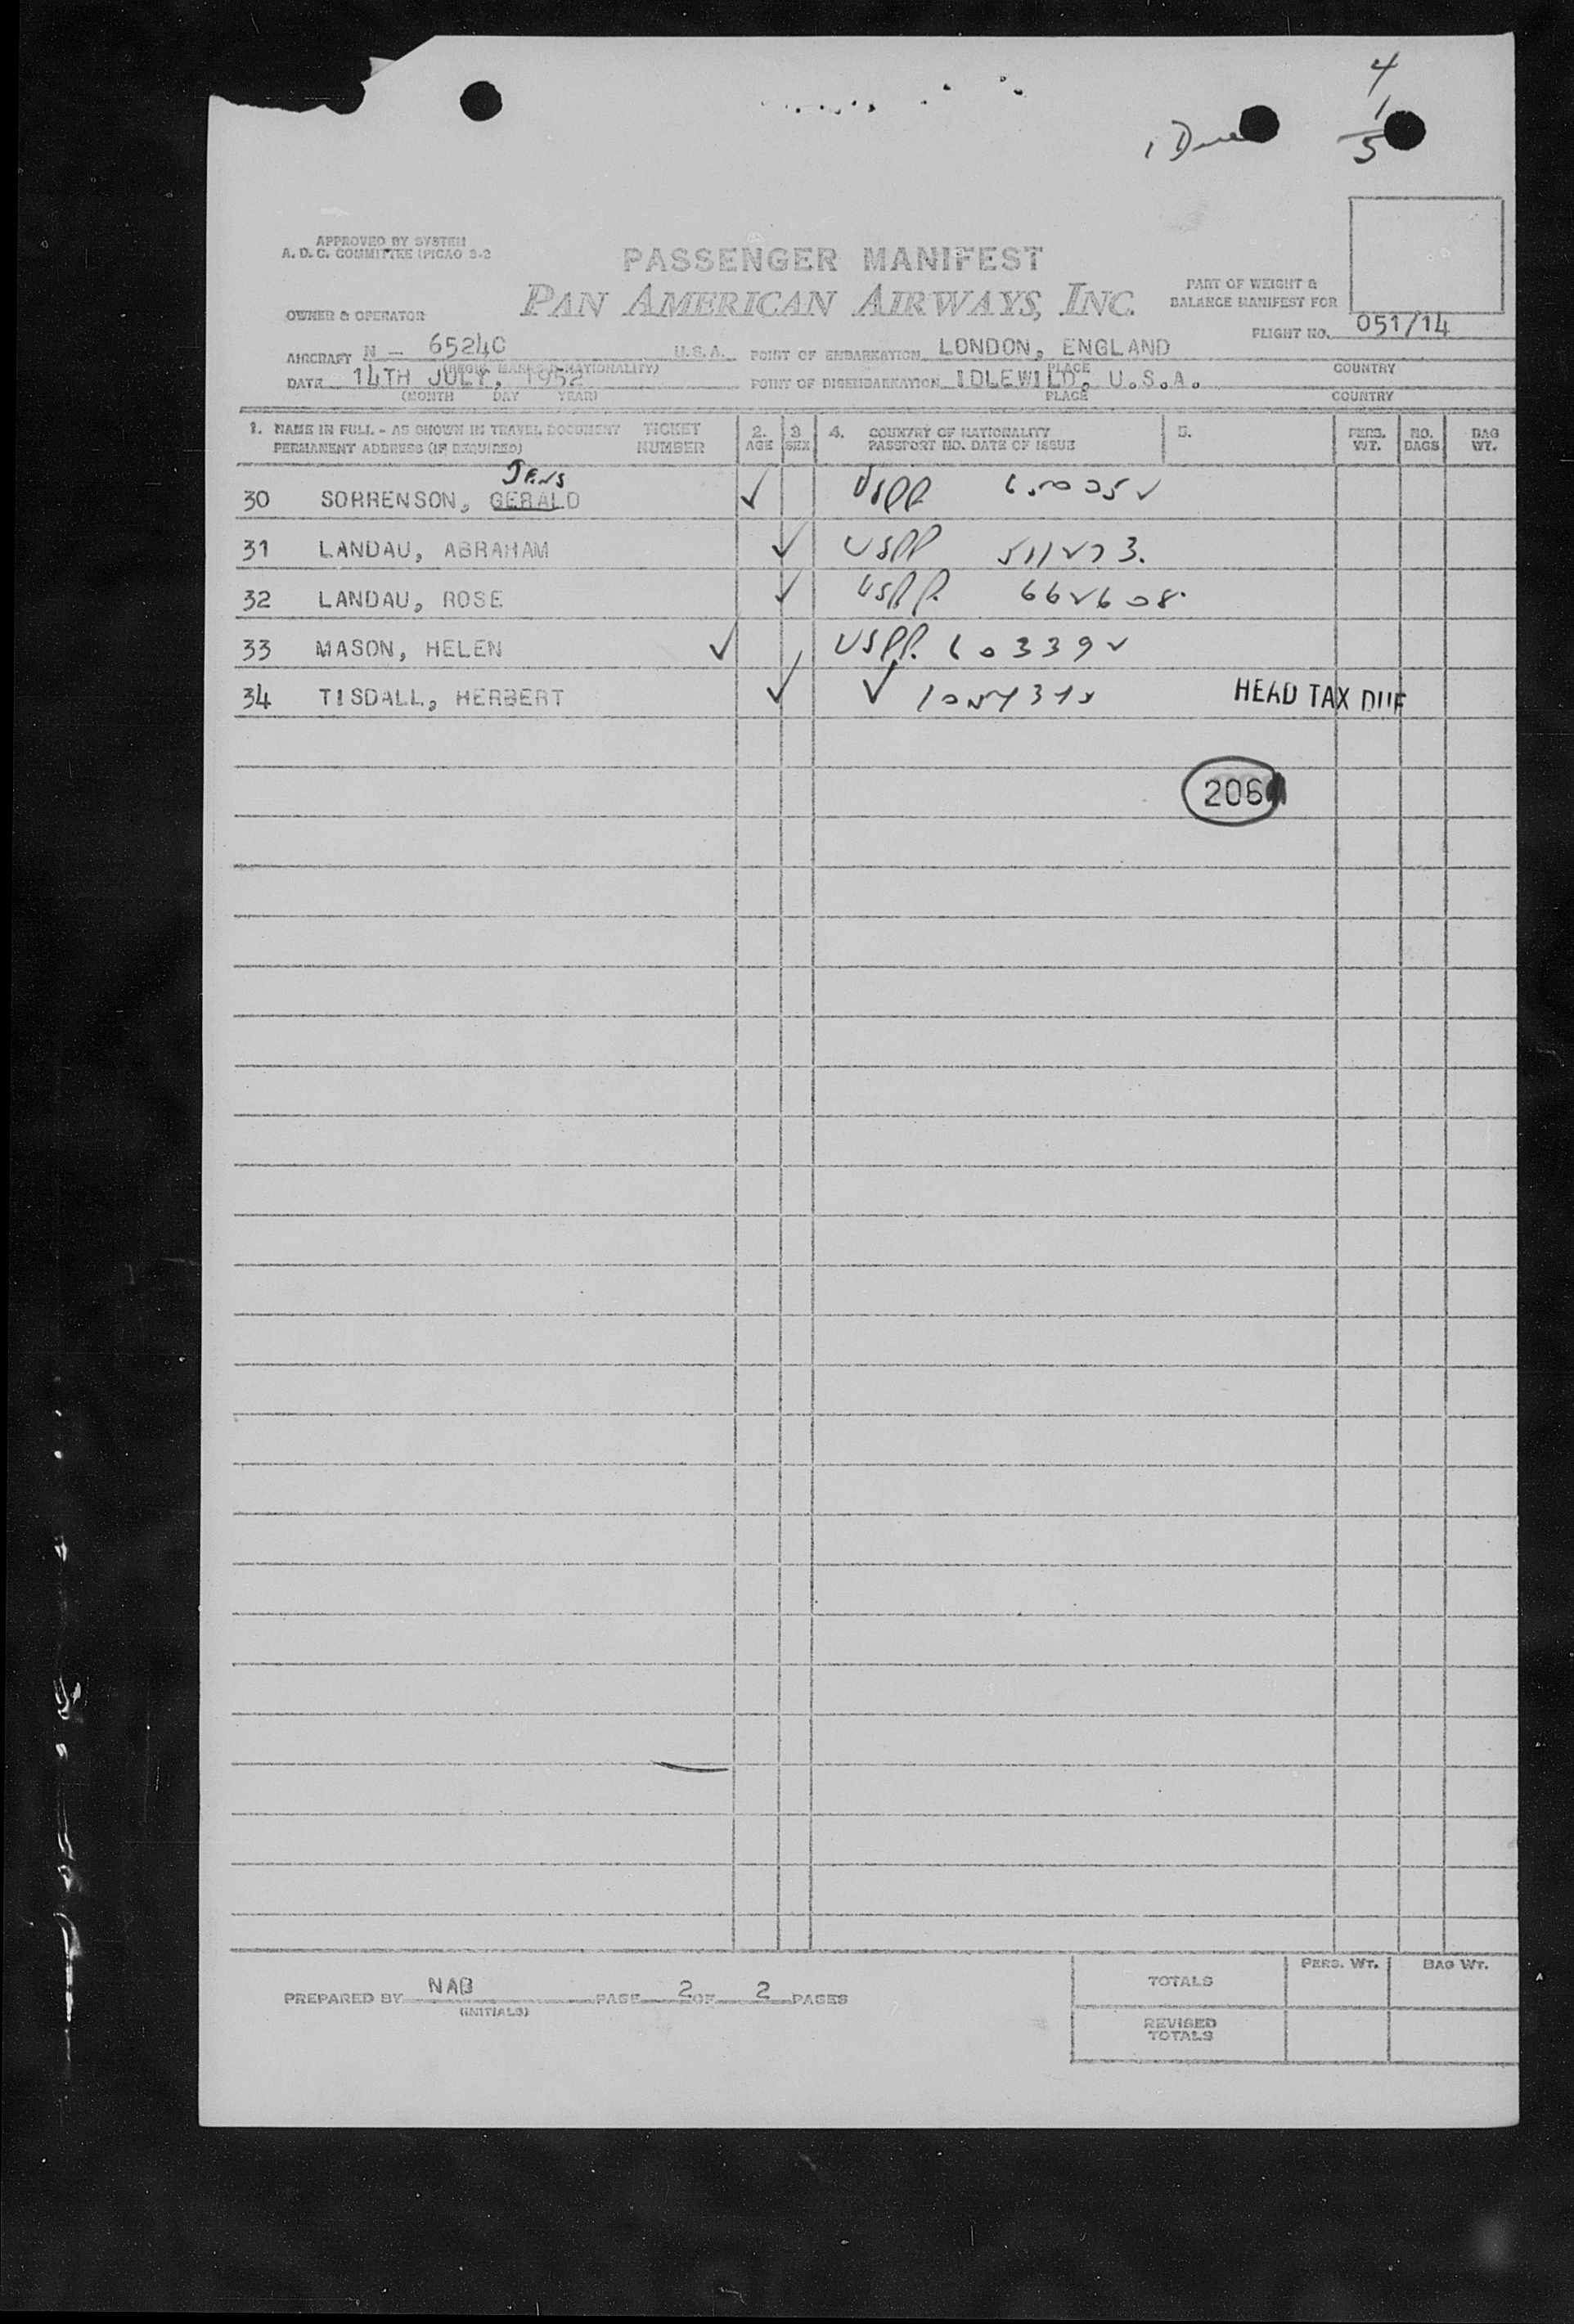 4
1
1 Due 5
APPROVED BY SYSTEM
A. D. C. COMMITTEE (PICAO S-2
PASSENGER MANIFEST
PAN AMERICAN AIRWAYS, INC.
PART OF WEIGHT &
BALANCE MANIFEST FOR
OWNER & OPERATOR
FLIGHT NO. 051/14
AIRCRAFT N - 65240 U.S.A. POINT OF EMBARKATION LONDON, ENGLAND
(REGIS. MARKS & NATIONALITY) PLACE COUNTRY
DATE 14TH JULY, 1952 POINT OF DISEMBARKATION IDLEWILD, U.S.A.
(MONTH DAY YEAR) PLACE COUNTRY
1. NAME IN FULL - AS SHOWN IN TRAVEL DOCUMENT TICKET 2. 3. 4. COUNTRY OF NATIONALITY 5. PERS. NO. BAG
PERMANENT ADDRESS (IF REQUIRED) NUMBER AGE SEX PASSPORT NO. DATE OF ISSUE WT. BAGS WT.
JENS
30 SORRENSON, GERALD ✓ USPP 650052
31 LANDAU, ABRAHAM ✓ USPP 511273.
32 LANDAU, ROSE ✓ USPP. 662608.
33 MASON, HELEN ✓ USPP. 603392
34 TISDALL, HERBERT ✓ ✓ HEAD TAX DUE
206
PREPARED BY NAB PAGE 2 OF 2 PAGES
(INITIALS)
TOTALS PERS. WT. BAG WT.
REVISED
TOTALS